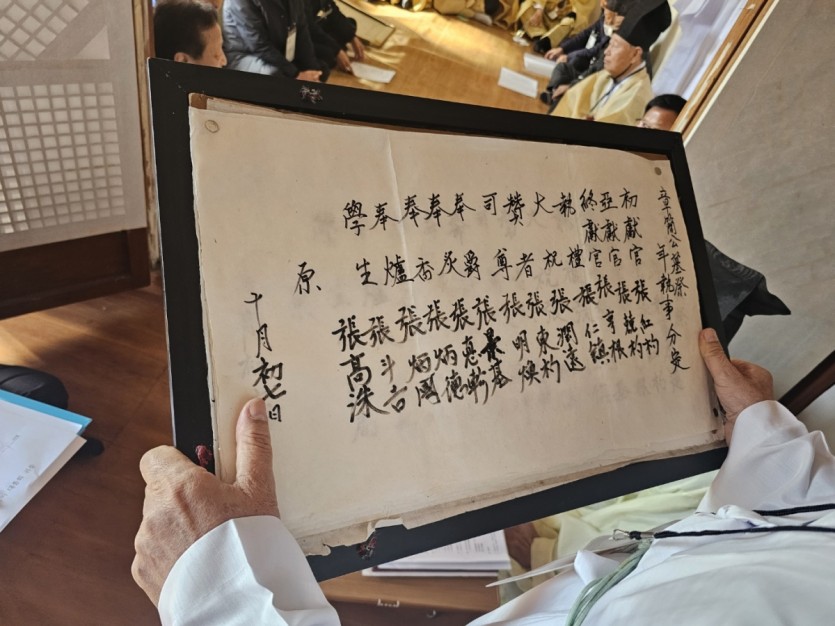 章簡公墓祭 年執事分定
初獻官 張 杓
亞獻官 張 根
終獻官 張仁鎮
執禮 張潤遠
大祝 張東杓
贊者 張明煥
司尊 張 基
奉爵 張惠
奉炙 張炳德
奉香 張炳國
奉爐 張斗台
學生 張高洙
原
十月初七日